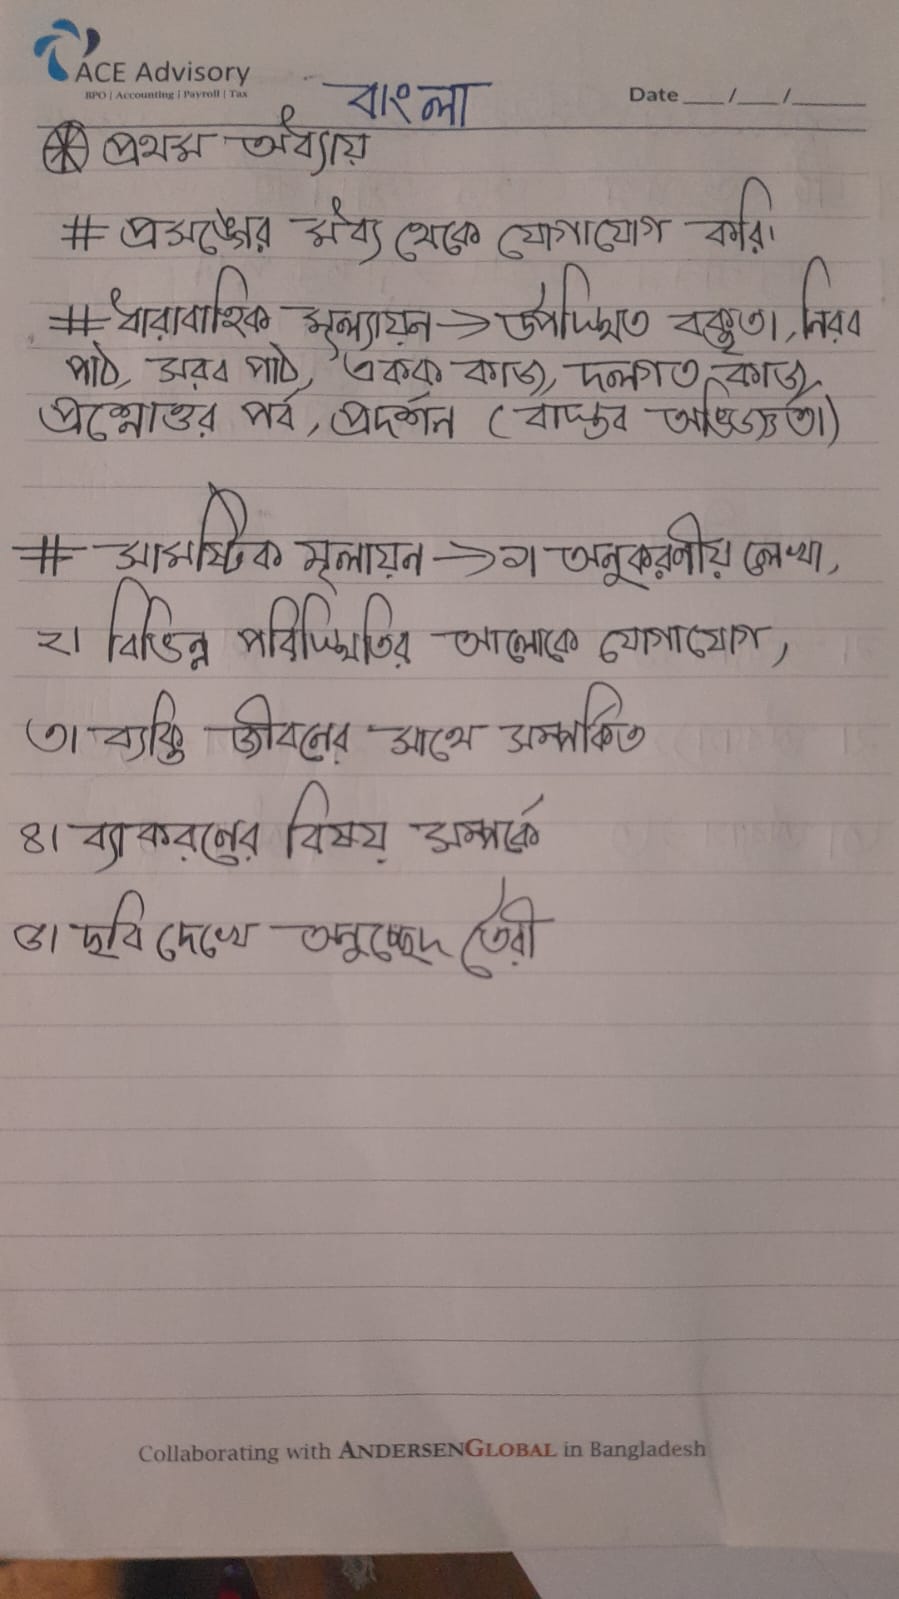 ACE Advisory
BPO | Accounting | Payroll | Tax
বাংলা
Date ___/___/______
প্রথম অধ্যায়
# প্রসঙ্গের মধ্য থেকে যোগাযোগ করি।
# ধারাবাহিক মূল্যায়ন → উপস্থিত বক্তৃতা, নিরব
পাঠ, সরব পাঠ, একক কাজ, দলগত কাজ,
প্রশ্নোত্তর পর্ব, প্রদর্শন (বাস্তব অভিজ্ঞতা)
# সামষ্টিক মূলায়ন → ১। অনুকরনীয় লেখা,
২। বিভিন্ন পরিস্থিতির আলোকে যোগাযোগ,
৩। ব্যক্তি জীবনের সাথে সম্পর্কিত
৪। ব্যাকরনের বিষয় সম্পর্কে
৫। ছবি দেখে অনুচ্ছেদ তৈরী
Collaborating with ANDERSENGLOBAL in Bangladesh